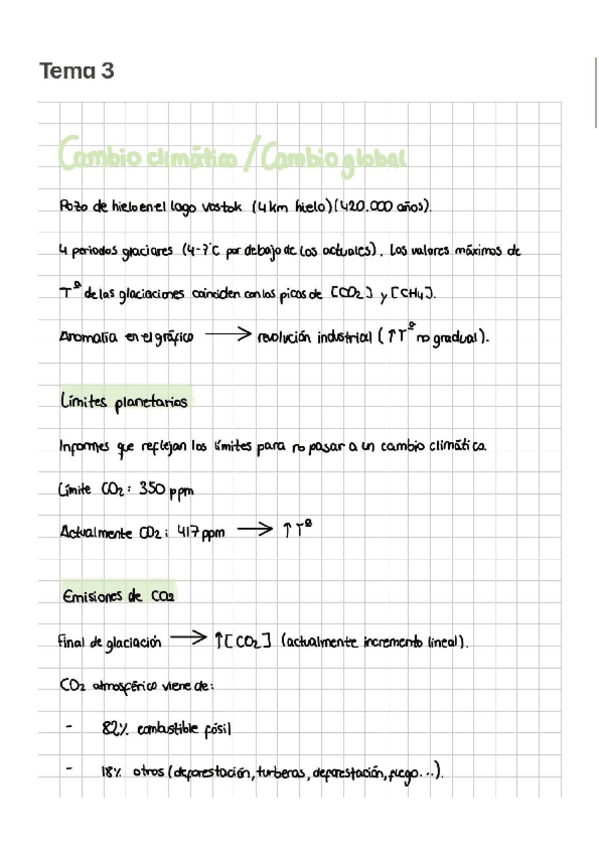 Tema 3
Cambio climático / Cambio global
Pozo de hielo en el lago vostok (4 km hielo) (420.000 años).
4 periodos glaciares (4-7°C por debajo de los actuales). Los valores máximos de
Tª de las glaciaciones coinciden con los picos de [CO2] y [CH4].
Anomalía en el gráfico → revolución industrial (↑Tª no gradual).
Límites planetarios
Informes que reflejan los límites para no pasar a un cambio climático.
Límite CO2: 350 ppm
Actualmente CO2: 417 ppm → ↑Tª
Emisiones de CO2
Final de glaciación → ↑[CO2] (actualmente incremento lineal).
CO2 atmosférico viene de:
- 82% combustible fósil
- 18% otros (deforestación, turberas, deforestación, fuego...).